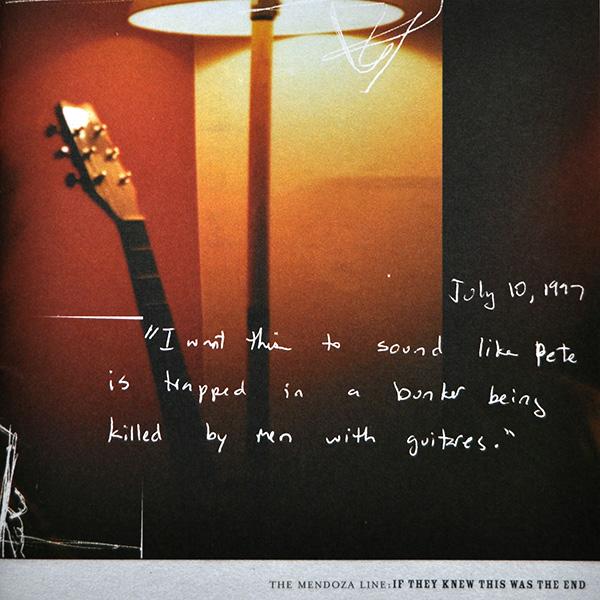 July 10, 1997
"I want this to sound like pete
is trapped in a bunker being
killed by men with guitars."
THE MENDOZA LINE: IF THEY KNEW THIS WAS THE END